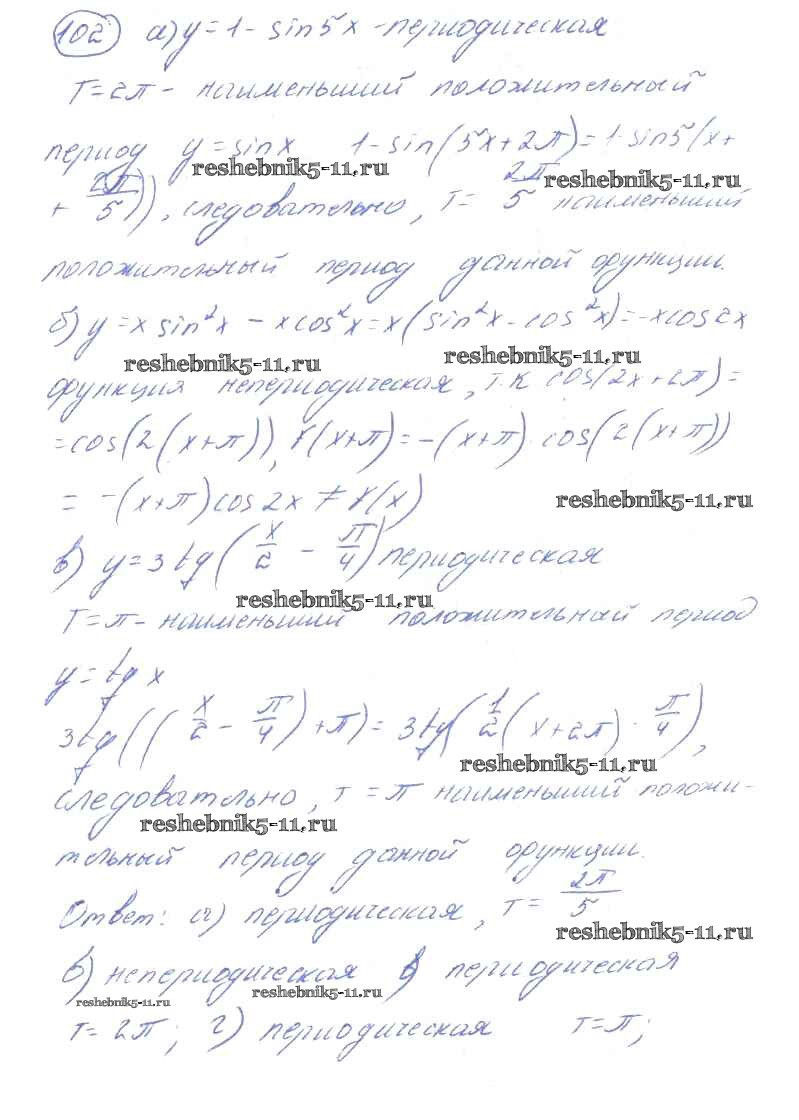 102 а) y = 1 - sin5x - периодическая
T = 2π - наименьший положительный
период y = sinx 1 - sin(5x + 2π) = 1 - sin5(x +
reshebnik5-11.ru
reshebnik5-11.ru
+ 2π/5)), следовательно, T = 2π/5 наименьший
положительный период данной функции.
б) y = x sin²x - x cos²x = x(sin²x - cos²x) = -x cos2x
reshebnik5-11.ru
reshebnik5-11.ru
функция непериодическая, т.к cos(2x + 2π) =
= cos(2(x + π)), f(x + π) = -(x + π) · cos(2(x + π))
= -(x + π) cos2x ≠ f(x)
reshebnik5-11.ru
в) y = 3tg(x/2 - π/4) периодическая
reshebnik5-11.ru
T = π - наименьший положительный период
y = tg x
3tg((x/2 - π/4) + π) = 3tg(1/2(x + 2π) - π/4),
reshebnik5-11.ru
следовательно, T = π наименьший положи-
reshebnik5-11.ru
тельный период данной функции.
Ответ: а) периодическая, T = 2π/5
reshebnik5-11.ru
б) непериодическая в) периодическая
reshebnik5-11.ru
reshebnik5-11.ru
T = 2π; г) периодическая T = π;